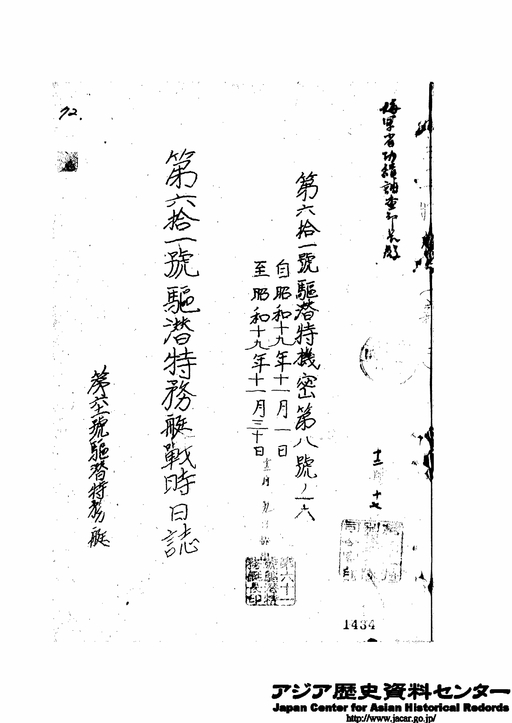 海軍省功績調査部長殿
十二月十七
第六拾一號驅潜特機密第八號ノ一六
自昭和十九年十一月一日
至昭和十九年十一月三十日
第六拾一號驅潜特務艇戰時日誌
第六十一號驅潜特務艇
72.
1434
アジア歴史資料センター
Japan Center for Asian Historical Records
http://www.jacar.go.jp/